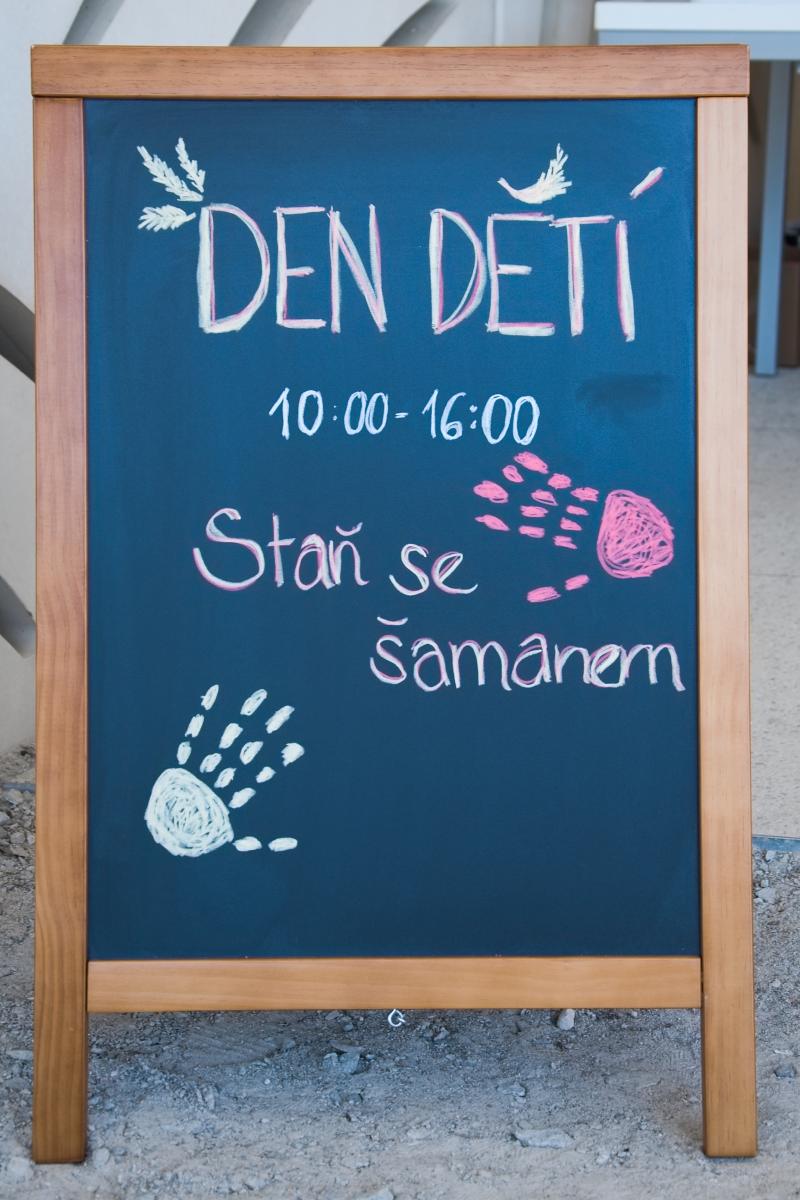 DEN DĚTÍ
10:00-16:00
Staň se
šamanem